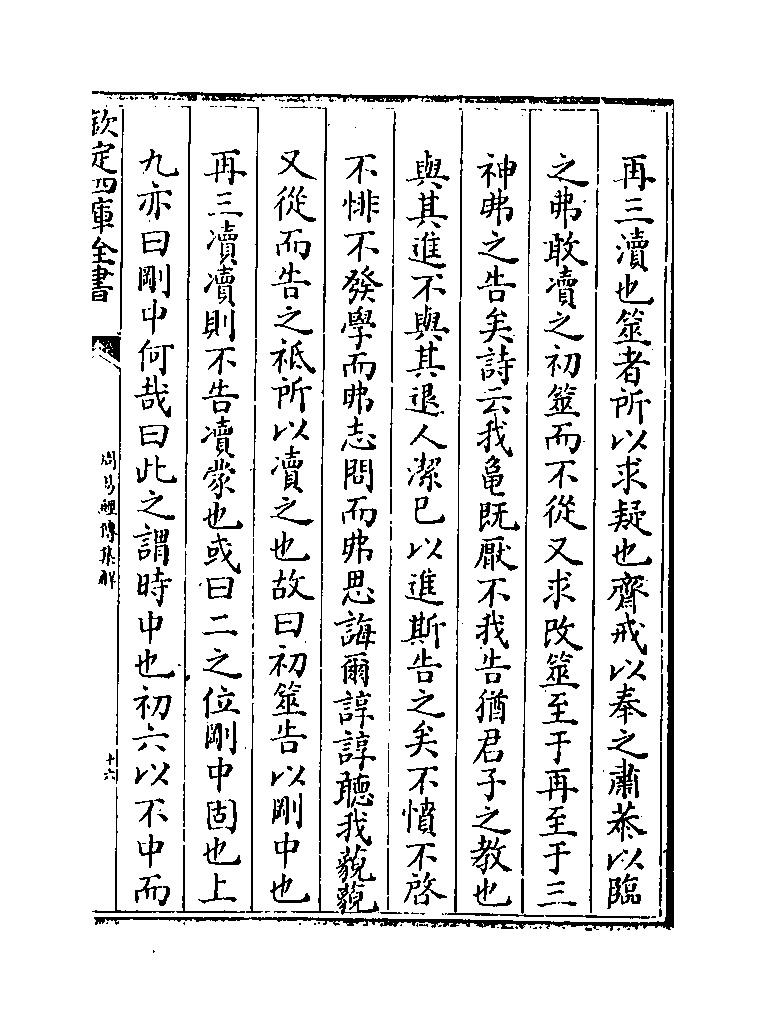 再三瀆也筮者所以求疑也齊戒以奉之肅恭以臨
之弗敢瀆之初筮而不從又求改筮至于再至于三
神弗之告矣詩云我龜既厭不我告猶君子之教也
與其進不與其退人潔已以進斯告之矣不憤不啓
不悱不發學而弗志問而弗思誨爾諄諄聽我藐藐
又從而告之祗所以瀆之也故曰初筮告以剛中也
再三瀆瀆則不告瀆蒙也或曰二之位剛中固也上
九亦曰剛中何哉曰此之謂時中也初六以不中而
欽定四庫全書
周易經傳集解
十六